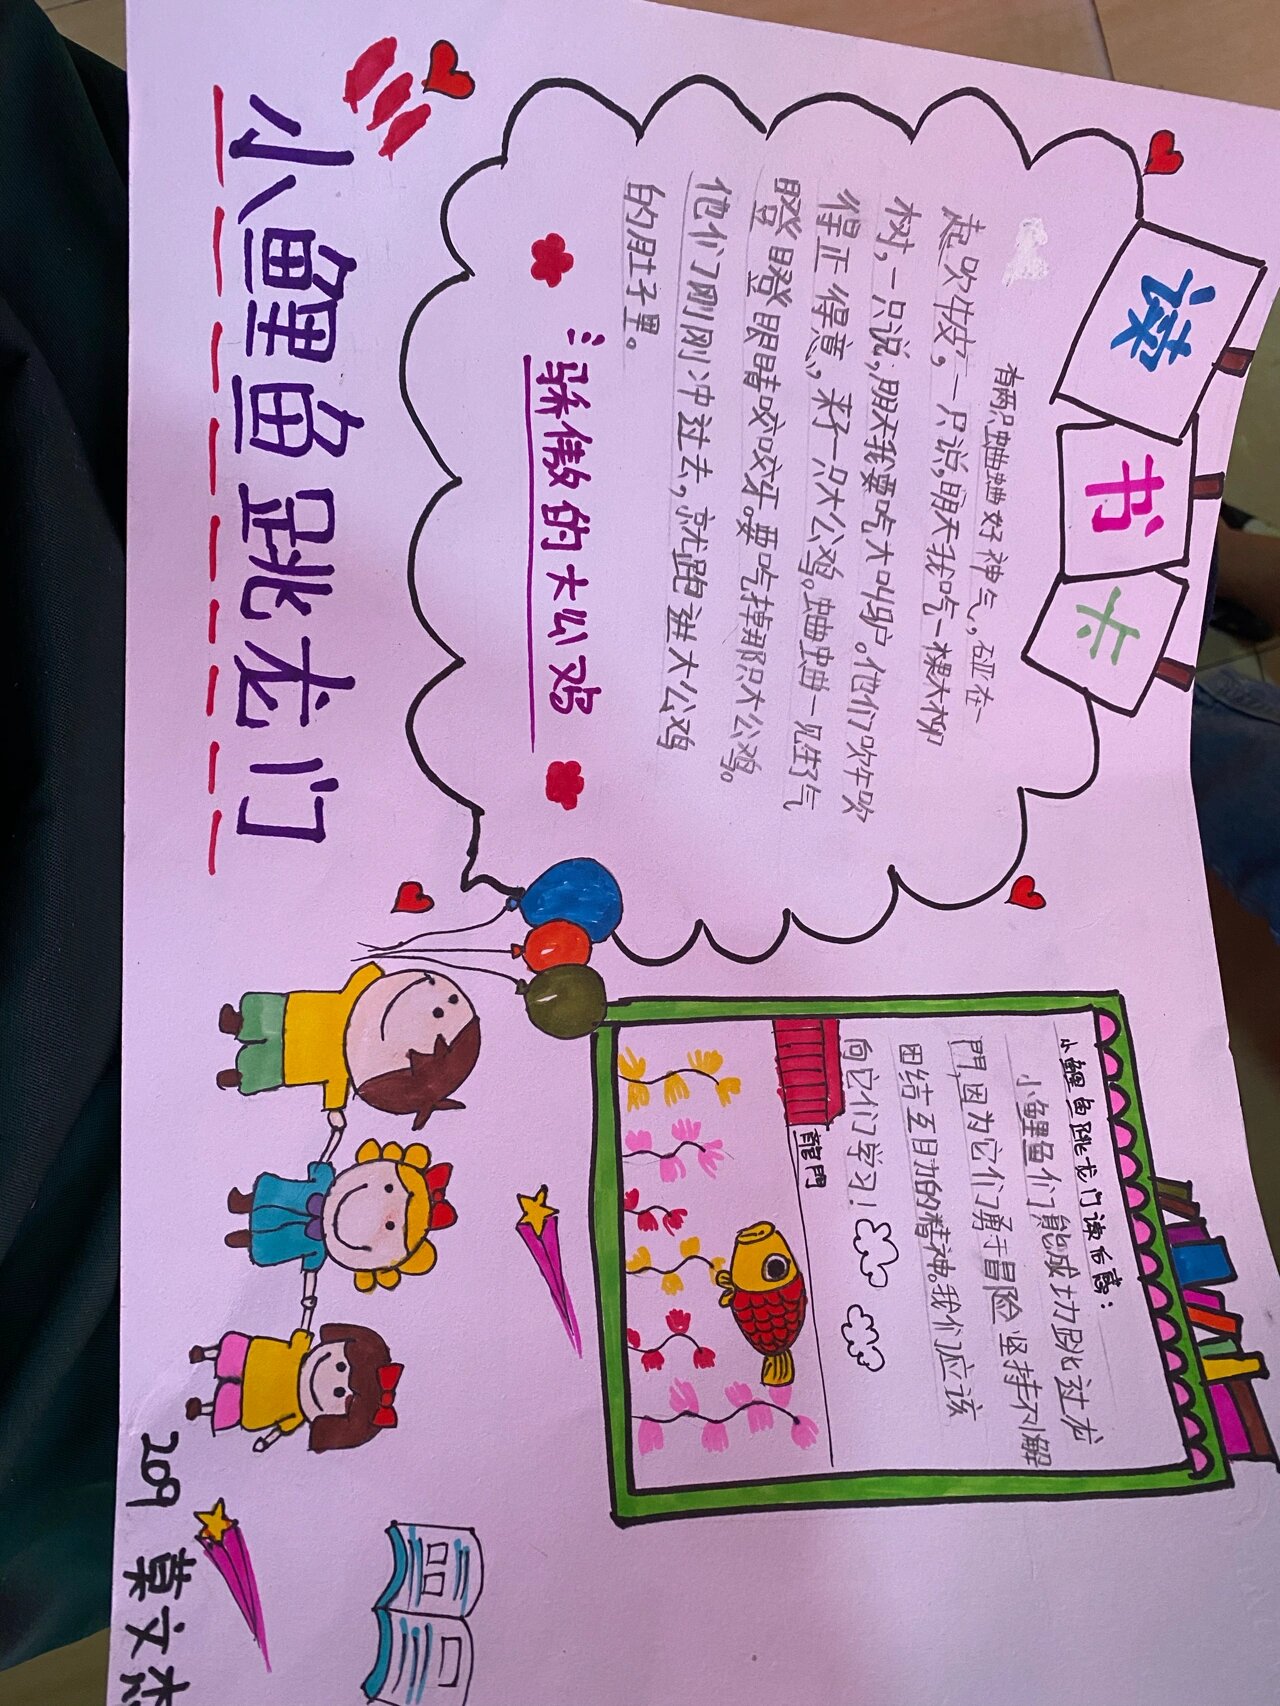 读书卡
有两只蛐蛐好神气,碰在一
起吹牛皮,一只说,明天我吃一棵大柳
树,一只说,明天我要吃大叫驴。他们吹牛吹
得正得意,来了一只大公鸡。蛐蛐一见生了气
瞪瞪眼睛咬咬牙。要吃掉那只大公鸡。
他们刚刚冲过去,就跑进大公鸡
的肚子里。
骄傲的大公鸡
小鲤鱼跳龙门
小鲤鱼跳龙门读后感:
小鲤鱼们能成功跳过龙
門,因为它们勇于冒险坚持不懈
团结互助的精神。我们应该
向它们学习!
龍門
209 莫文